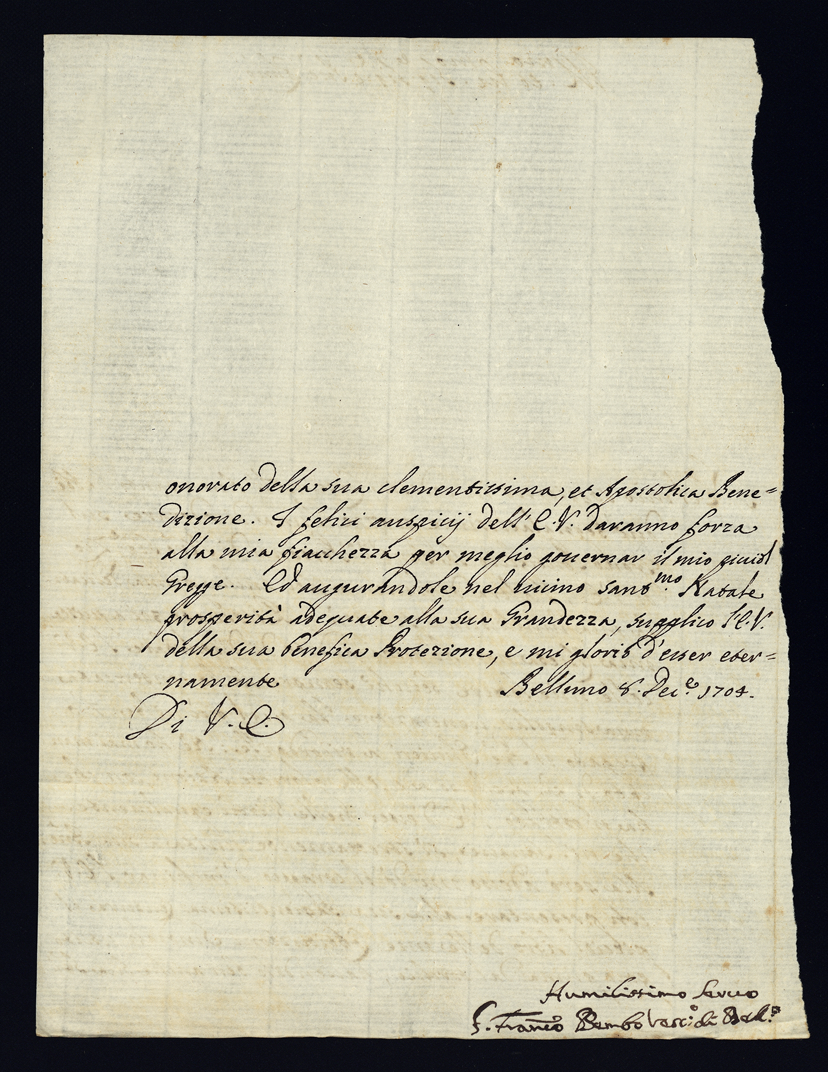 onorato della sua clementissima, et Apostolica Bene=
dizione. I felici auspicij dell' E.V. daranno forza
alla mia fiacchezza per meglio governar il mio picciol
Gregge. Ed augurandole nel vicino sant.mo Natale
prosperità adeguate alla sua Grandezza, supplico l'E.V.
della sua benefica Protezione, e mi glorio d'esser eter=
namente
Belluno 8. Dec.e 1704.
Di V. E.
Humilissimo Servo
F. Franc.o Bembo Vesc.o di Bell.o